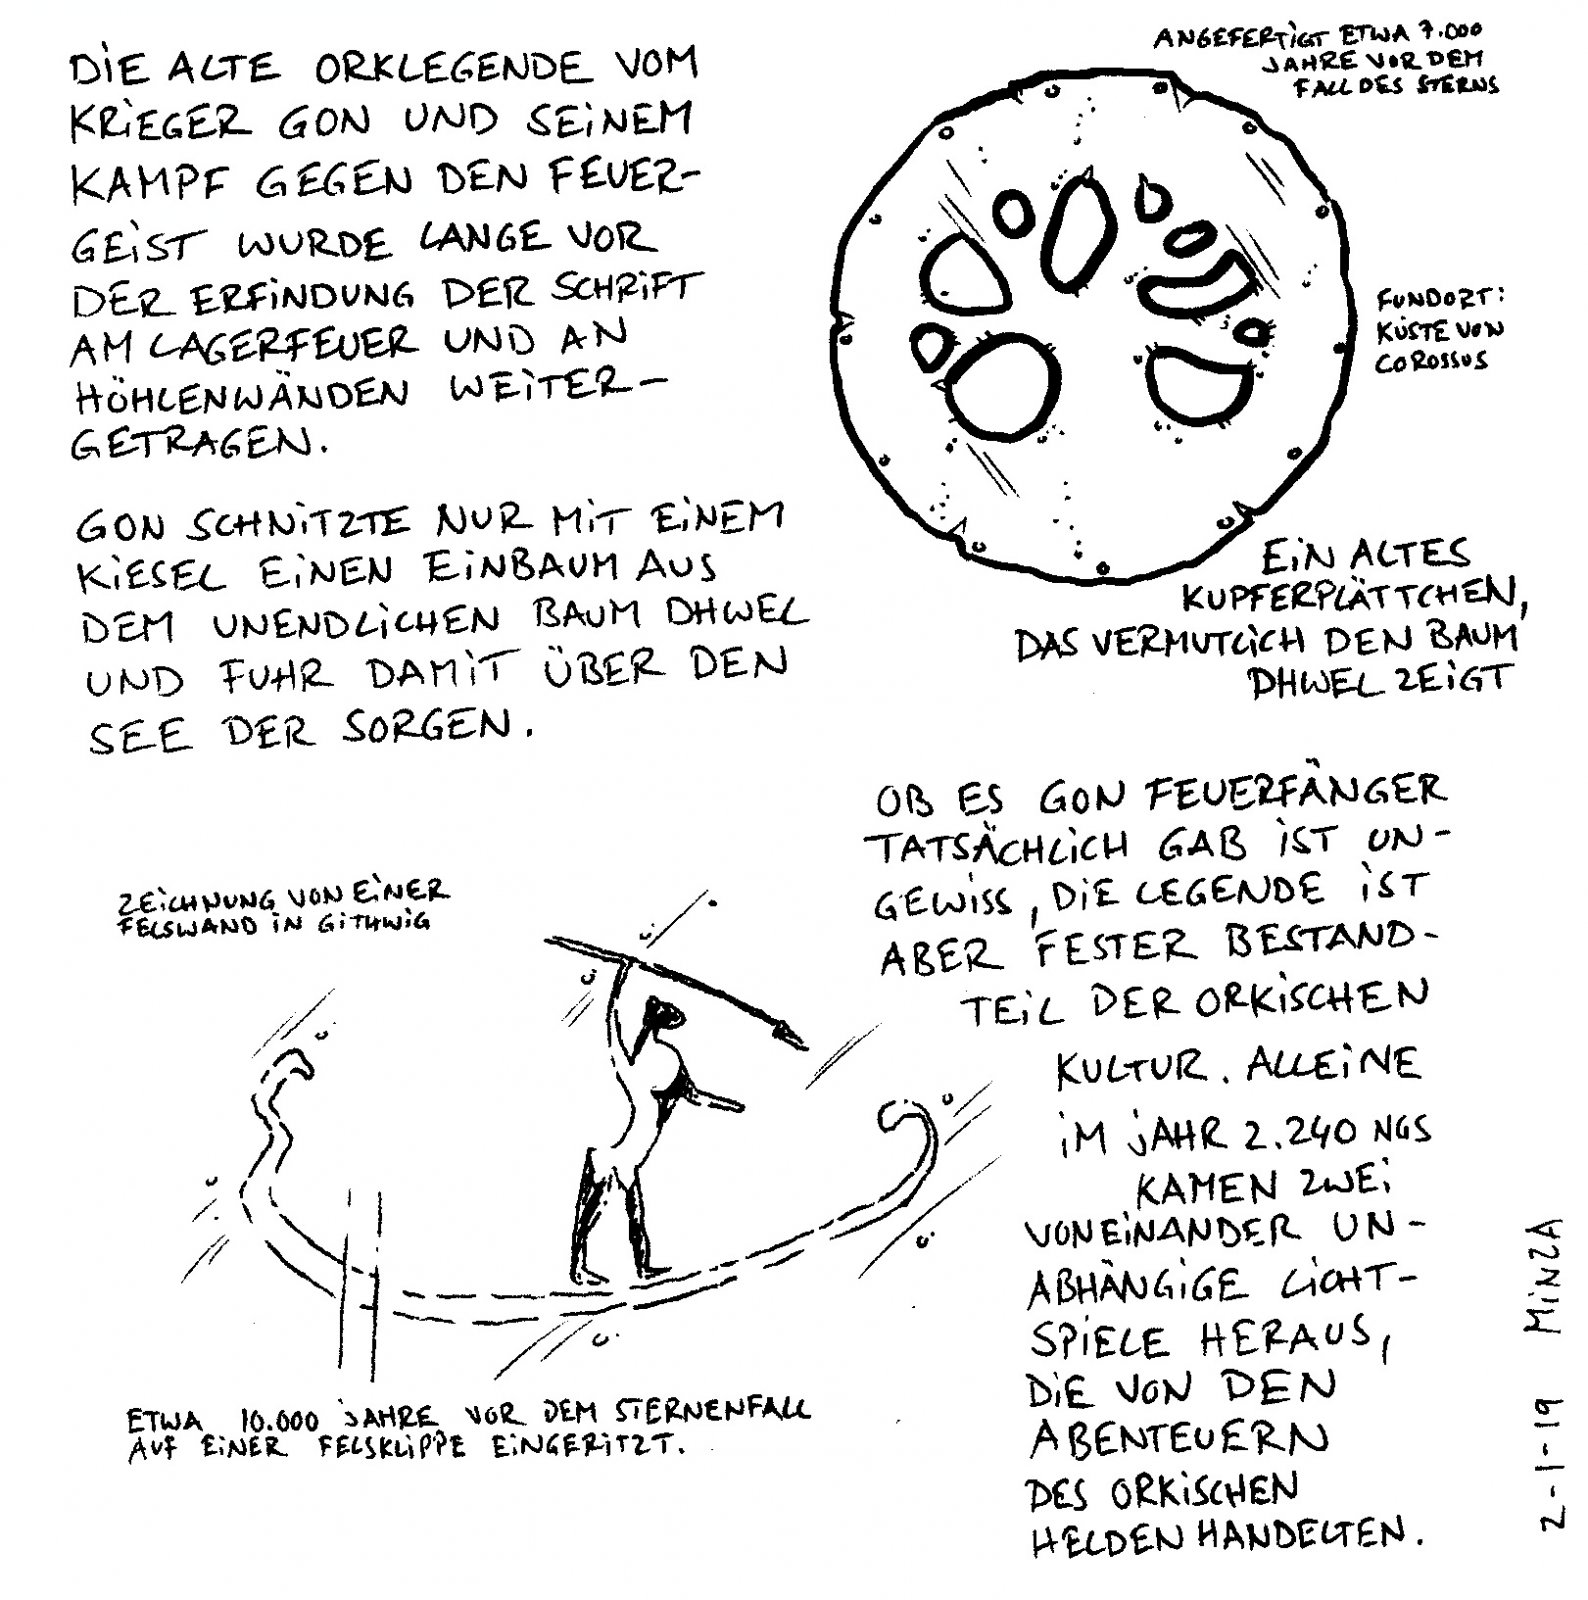 DIE ALTE ORKLEGENDE VOM
KRIEGER GON UND SEINEM
KAMPF GEGEN DEN FEUER-
GEIST WURDE LANGE VOR
DER ERFINDUNG DER SCHRIFT
AM LAGERFEUER UND AN
HÖHLENWÄNDEN WEITER-
GETRAGEN.
GON SCHNITZTE NUR MIT EINEM
KIESEL EINEN EINBAUM AUS
DEM UNENDLICHEN BAUM DHWEL
UND FUHR DAMIT ÜBER DEN
SEE DER SORGEN.
ANGEFERTIGT ETWA 7.000
JAHRE VOR DEM
FALL DES STERNS
FUNDORT:
KÜSTE VON
COROSSUS
EIN ALTES
KUPFERPLÄTTCHEN,
DAS VERMUTLICH DEN BAUM
DHWEL ZEIGT
ZEICHNUNG VON EINER
FELSWAND IN GITHWIG
ETWA 10.000 JAHRE VOR DEM STERNENFALL
AUF EINER FELSKLIPPE EINGERITZT.
OB ES GON FEUERFÄNGER
TATSÄCHLICH GAB IST UN-
GEWISS, DIE LEGENDE IST
ABER FESTER BESTAND-
TEIL DER ORKISCHEN
KULTUR. ALLEINE
IM JAHR 2.240 NGS
KAMEN ZWEI
VONEINANDER UN-
ABHÄNGIGE LICHT-
SPIELE HERAUS,
DIE VON DEN
ABENTEUERN
DES ORKISCHEN
HELDEN HANDELTEN.
2-1-19 MINZA